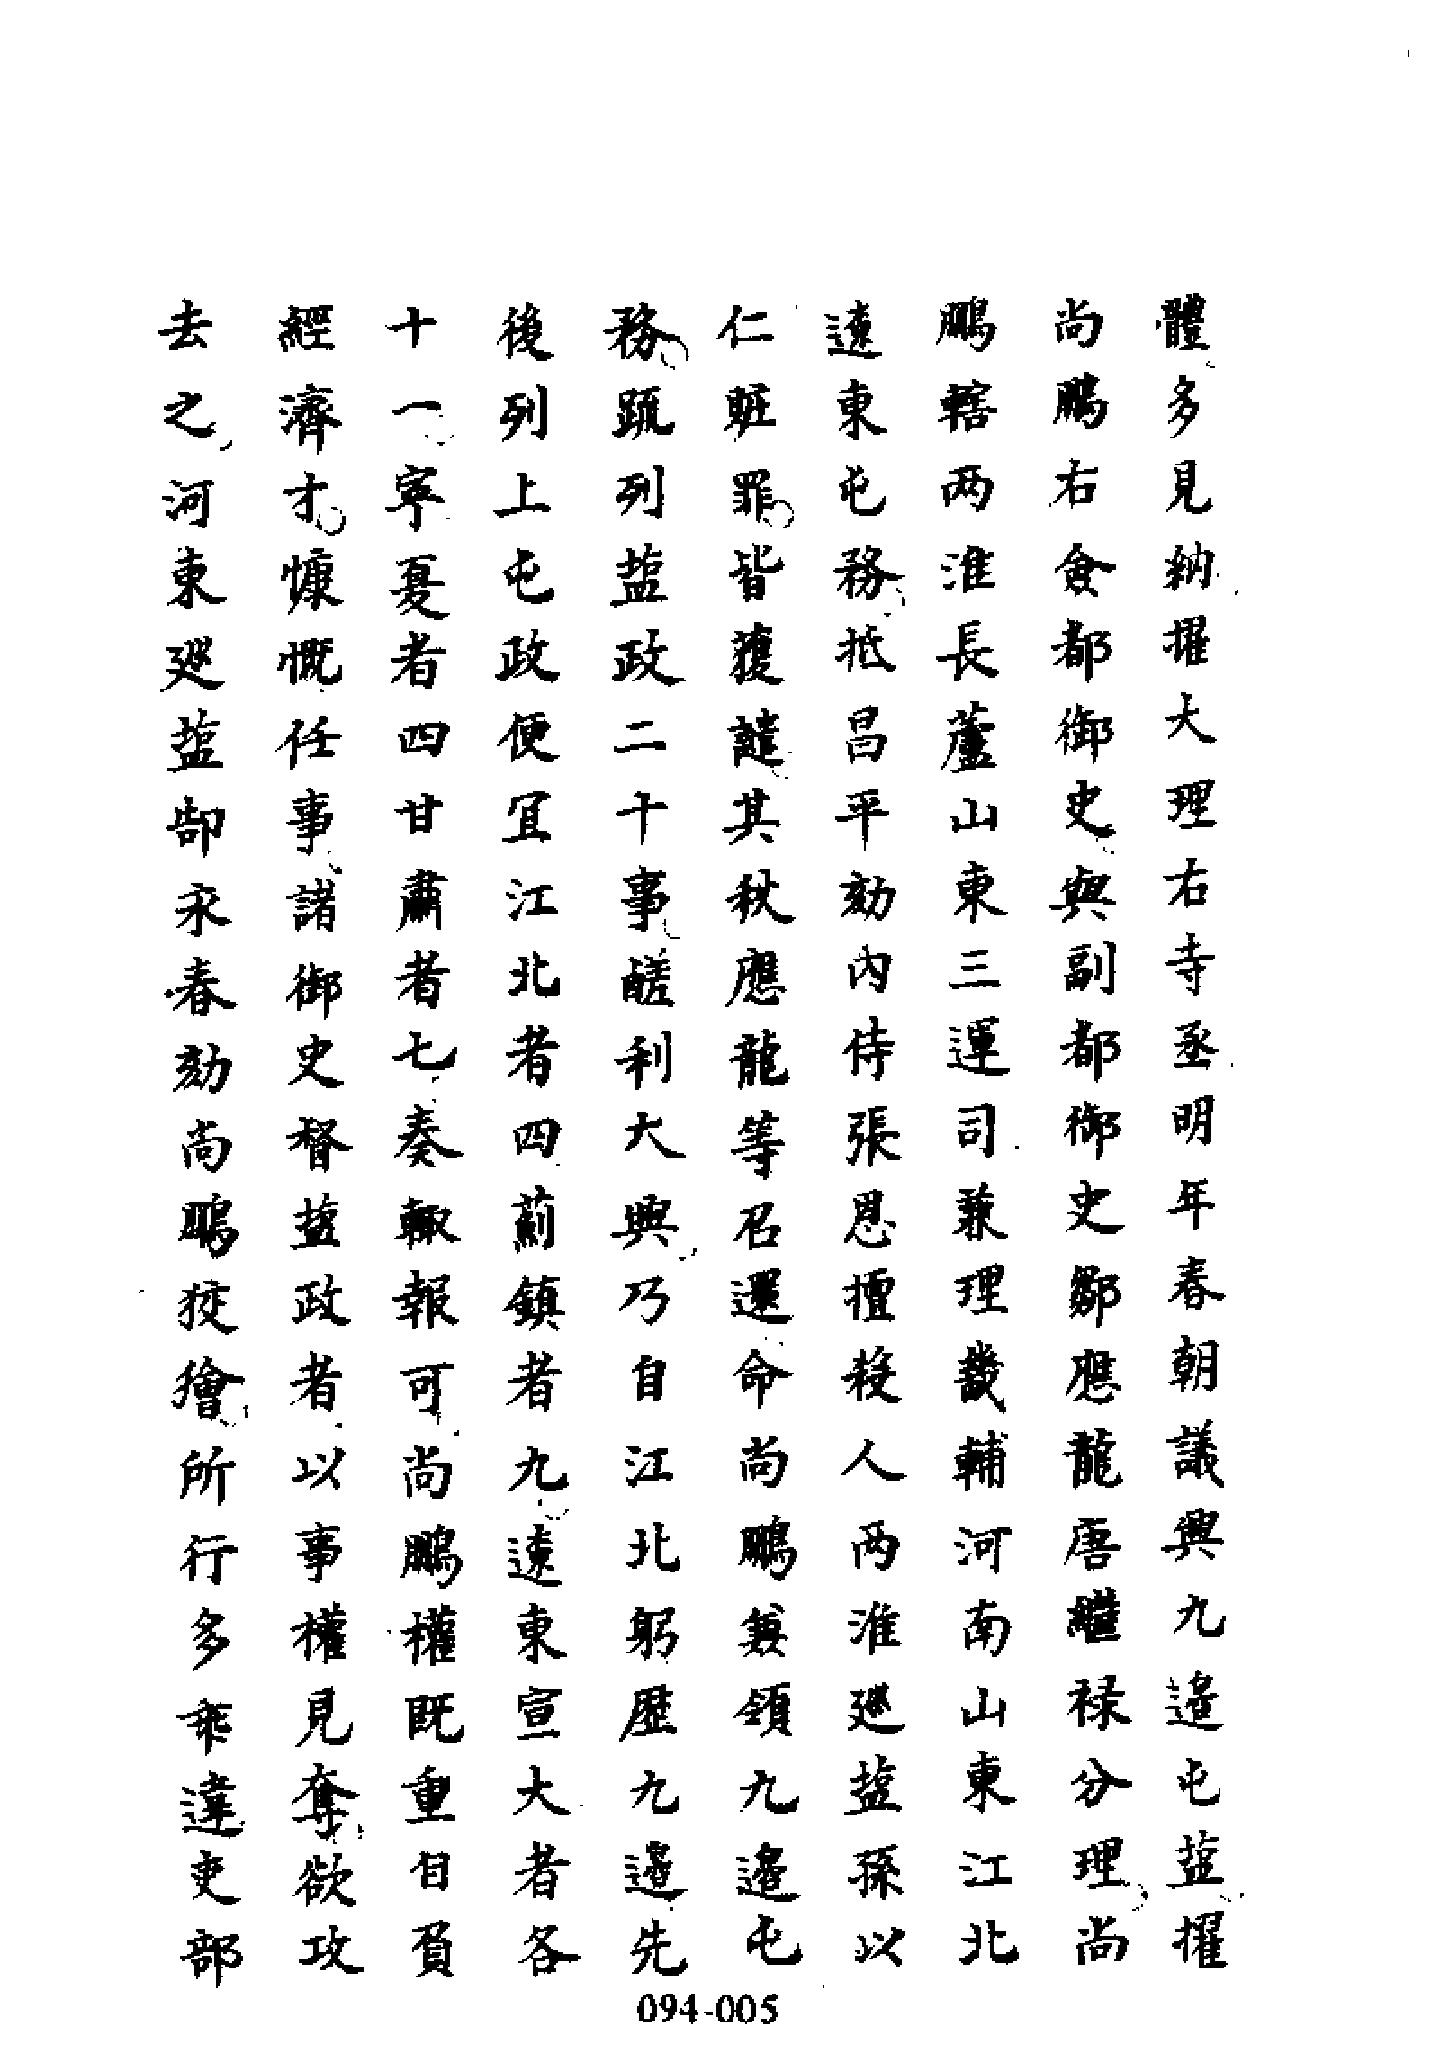 體多見納擢大理右寺丞明年春朝議興九邊屯盐擢
尚鵬右僉都御史與副都御史鄒應龍唐繼祿分理尚
鵬轄两淮長蘆山東三運司兼理畿輔河南山東江北
遼東屯務抵昌平劾內侍張恩擅殺人两淮廵盐孫以
仁賍罪皆獲譴其秋應龍等召還命尚鵬兼領九邊屯
務疏列盐政二十事鹺利大興乃自江北躬歷九邊先
後列上屯政便宜江北者四薊鎮者九遼東宣大者各
十一寧夏者四甘肅者七奏輙報可尚鵬權既重自負
經濟才慷慨任事諸御史督盐政者以事權見奪欲攻
去之河東廵盐郜永春劾尚鵬狡獪所行多乖違吏部
094-005